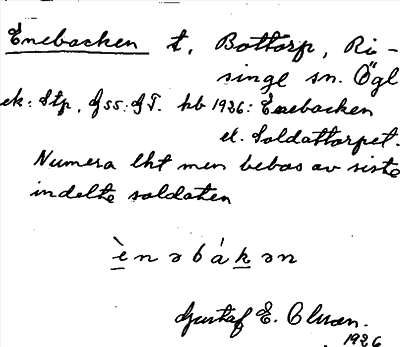 Enebacken t. Bottorp, Ri-
singe sn. Ögl
ek: Stp, Gss: GT. hb 1926: Enebacken
el. Soldattorpet.
Numera lht men bebos av siste
indelte soldaten
ènəbákən
Gustaf E.
1926